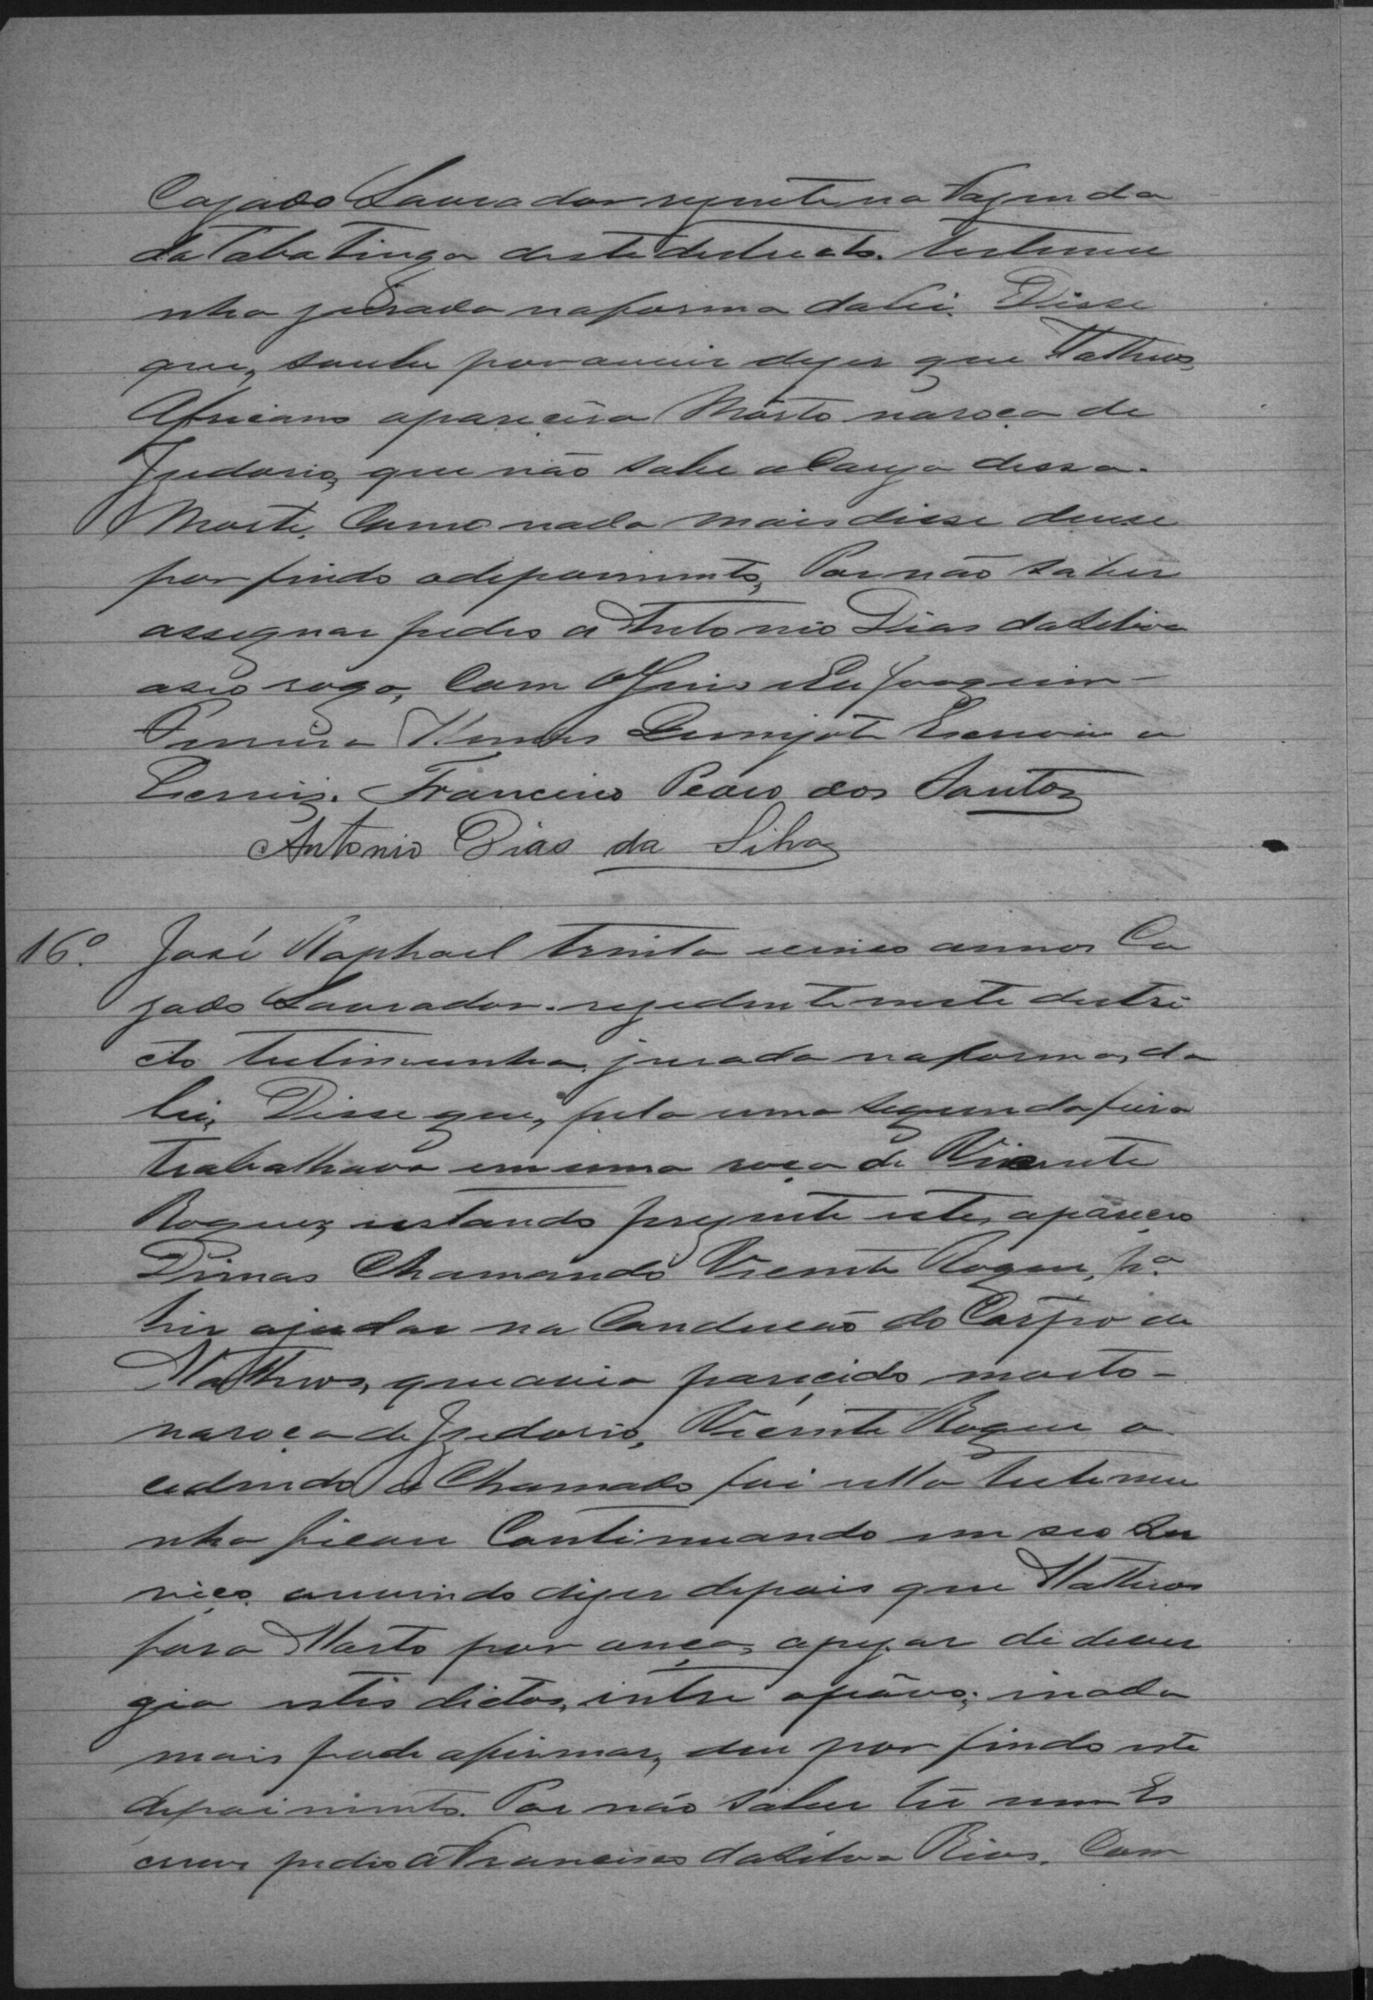 Cazado Lavrador rezidente na Fazenda
da Tabatinga deste destricto. testemu
nha jurada na forma da lei. Disse
que, soube por ouvir dizer que Matheus
Africano aparecêra Morto na roça de
Izidorio, que não sabe a Cauza dessa
Morte. Como nada mais disse deuse
por findo o depoimento, Por não saber
assegnar pedio a Antonio Dias da Silva
a seo rogo, Com o Eu Joaquim
Escrivão o
Escrevi. Francisco Pedro dos Santos
Antonio Dias da Silva
16º. José Raphael trinta e cinco annos Ca
zado Lavrador. rezidente neste destri
cto testimunha jurada na forma da
lei, Disse que, pela uma segunda feira
trabalhava em uma roça de Vicente
Roque, e estando prezente este, apareceo
Dimas Chamando Vicente Roque, pª.
hir ajudar na Conducção do Corpo de
Matheus, que avia parecido morto
na roça de Izidorio, Vicente Roque a
cedendo o Chamado foi e ella testemu
nha ficou Continuando em seo Ser
viço. ouvindo dizer depois que Matheus
fora Morto por onça, apezar de
estes dictos, entre o povo; e nada
mais pode afirmar, deu por findo este
depoimento. Por não saber ler nem Es
crever pedio a Francisco da Silva Rios. Com